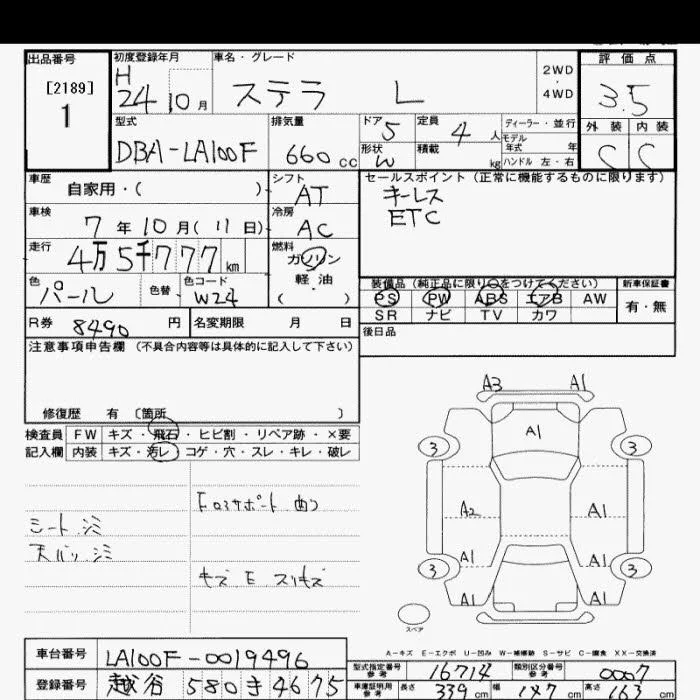 出品番号 初度登録年月 車名・グレード 2WD・4WD 評価点
[2189]
1
H 24 10月 ステラ L 3.5
型式 排気量 ドア 定員 ディーラー・並行 外装 内装
DBA-LA100F 660cc 5 4人 モデル年式 年 C C
形状 W 積載 kg ハンドル 左・右
車歴 自家用・( ) シフト AT セールスポイント(正常に機能するものに限ります)
キーレス
ETC
車検 7年10月(11日) 冷房 AC
走行 4万5千777km 燃料 ガソリン 軽・油 ( )
色 パール 色替 色コード W24 装備品(純正品に限り○をつけてください) 新車保証書
PS PW ABS エアB AW 有・無
SR ナビ TV カワ
R券 8490円 名変期限 月 日 後日品
注意事項申告欄(不具合内容等は具体的に記入して下さい)
修復歴 有〔箇所 〕
検査員 FW キズ・飛石・ヒビ割・リペア跡・×要
記入欄 内装 キズ・汚レ・コゲ・穴・スレ・キレ・破レ
シート シミ
天バリ シミ
キズ E スリキズ
A3 A1
A1
3 3
A2 A1
A1 A1
3 3
A1 A1
スペア
A-キズ E-エクボ U-凹み W-補修跡 S-サビ C-腐食 XX-交換済
車台番号 LA100F-0019496
登録番号 越谷 580 き 4675
型式指定番号 参考 16714 類別区分番号 参考 0007
車庫証明用 参考 長さ 339cm 幅 147cm 高さ 163cm